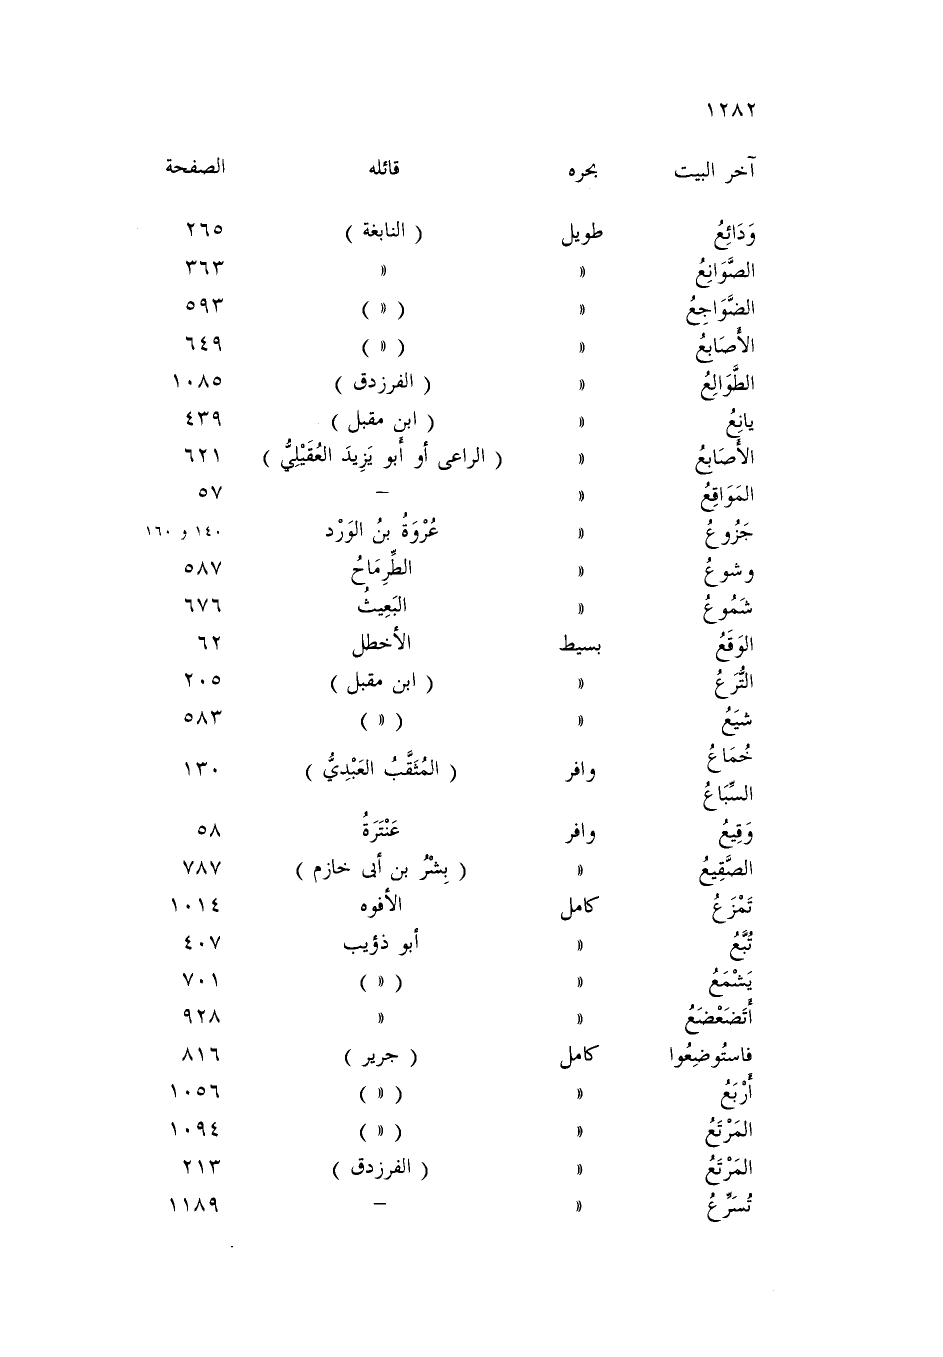 ١٢٨٢
آخر البيت بحره قائله الصفحة
وَدَائِعُ طويل ( النابغة ) ٢٦٥
الصَّوَانِعُ » » ٣٦٣
الضَّوَاجِعُ » ( » ) ٥٩٣
الأَصَابِعُ » ( » ) ٦٤٩
الطَّوَالِعُ » ( الفرزدق ) ١٠٨٥
يانِعُ » ( ابن مقبل ) ٤٣٩
الأَصَابِعُ » ( الراعى أو أَبو يَزِيدَ العُقَيْلِيُّ ) ٦٢١
المَوَاقِعُ » – ٥٧
جَزُوعُ » عُرْوَةُ بنُ الوَرْد ١٤٠ و ١٦٠
وشوعُ » الطِّرِمَاحُ ٥٨٧
شَمُوعُ » البَعِيثُ ٦٧٦
الوَقَعُ بسيط الأخطل ٦٢
التُّرَعُ » ( ابن مقبل ) ٢٠٥
شيَعُ » ( » ) ٥٨٣
خُمَاعُ
وافر ( المُثَقَّبُ العَبْدِيُّ ) ١٣٠
السِّبَاعُ
وَقِيعُ وافر عَنْتَرَةُ ٥٨
الصَّقِيعُ » ( بِشْرُ بن أبى خازم ) ٧٨٧
تَمْزَعُ كامل الأفوه ١٠١٤
تُبَّعُ » أبو ذؤيب ٤٠٧
يَشْمَعُ » ( » ) ٧٠١
أَتَضَعْضَعُ » » ٩٢٨
فاستُوضِعُوا كامل ( جرير ) ٨١٦
أَرْبَعُ » ( » ) ١٠٥٦
المَرْتَعُ » ( » ) ١٠٩٤
المَرْتَعُ » ( الفرزدق ) ٢١٣
تُسَرِّعُ » – ١١٨٩